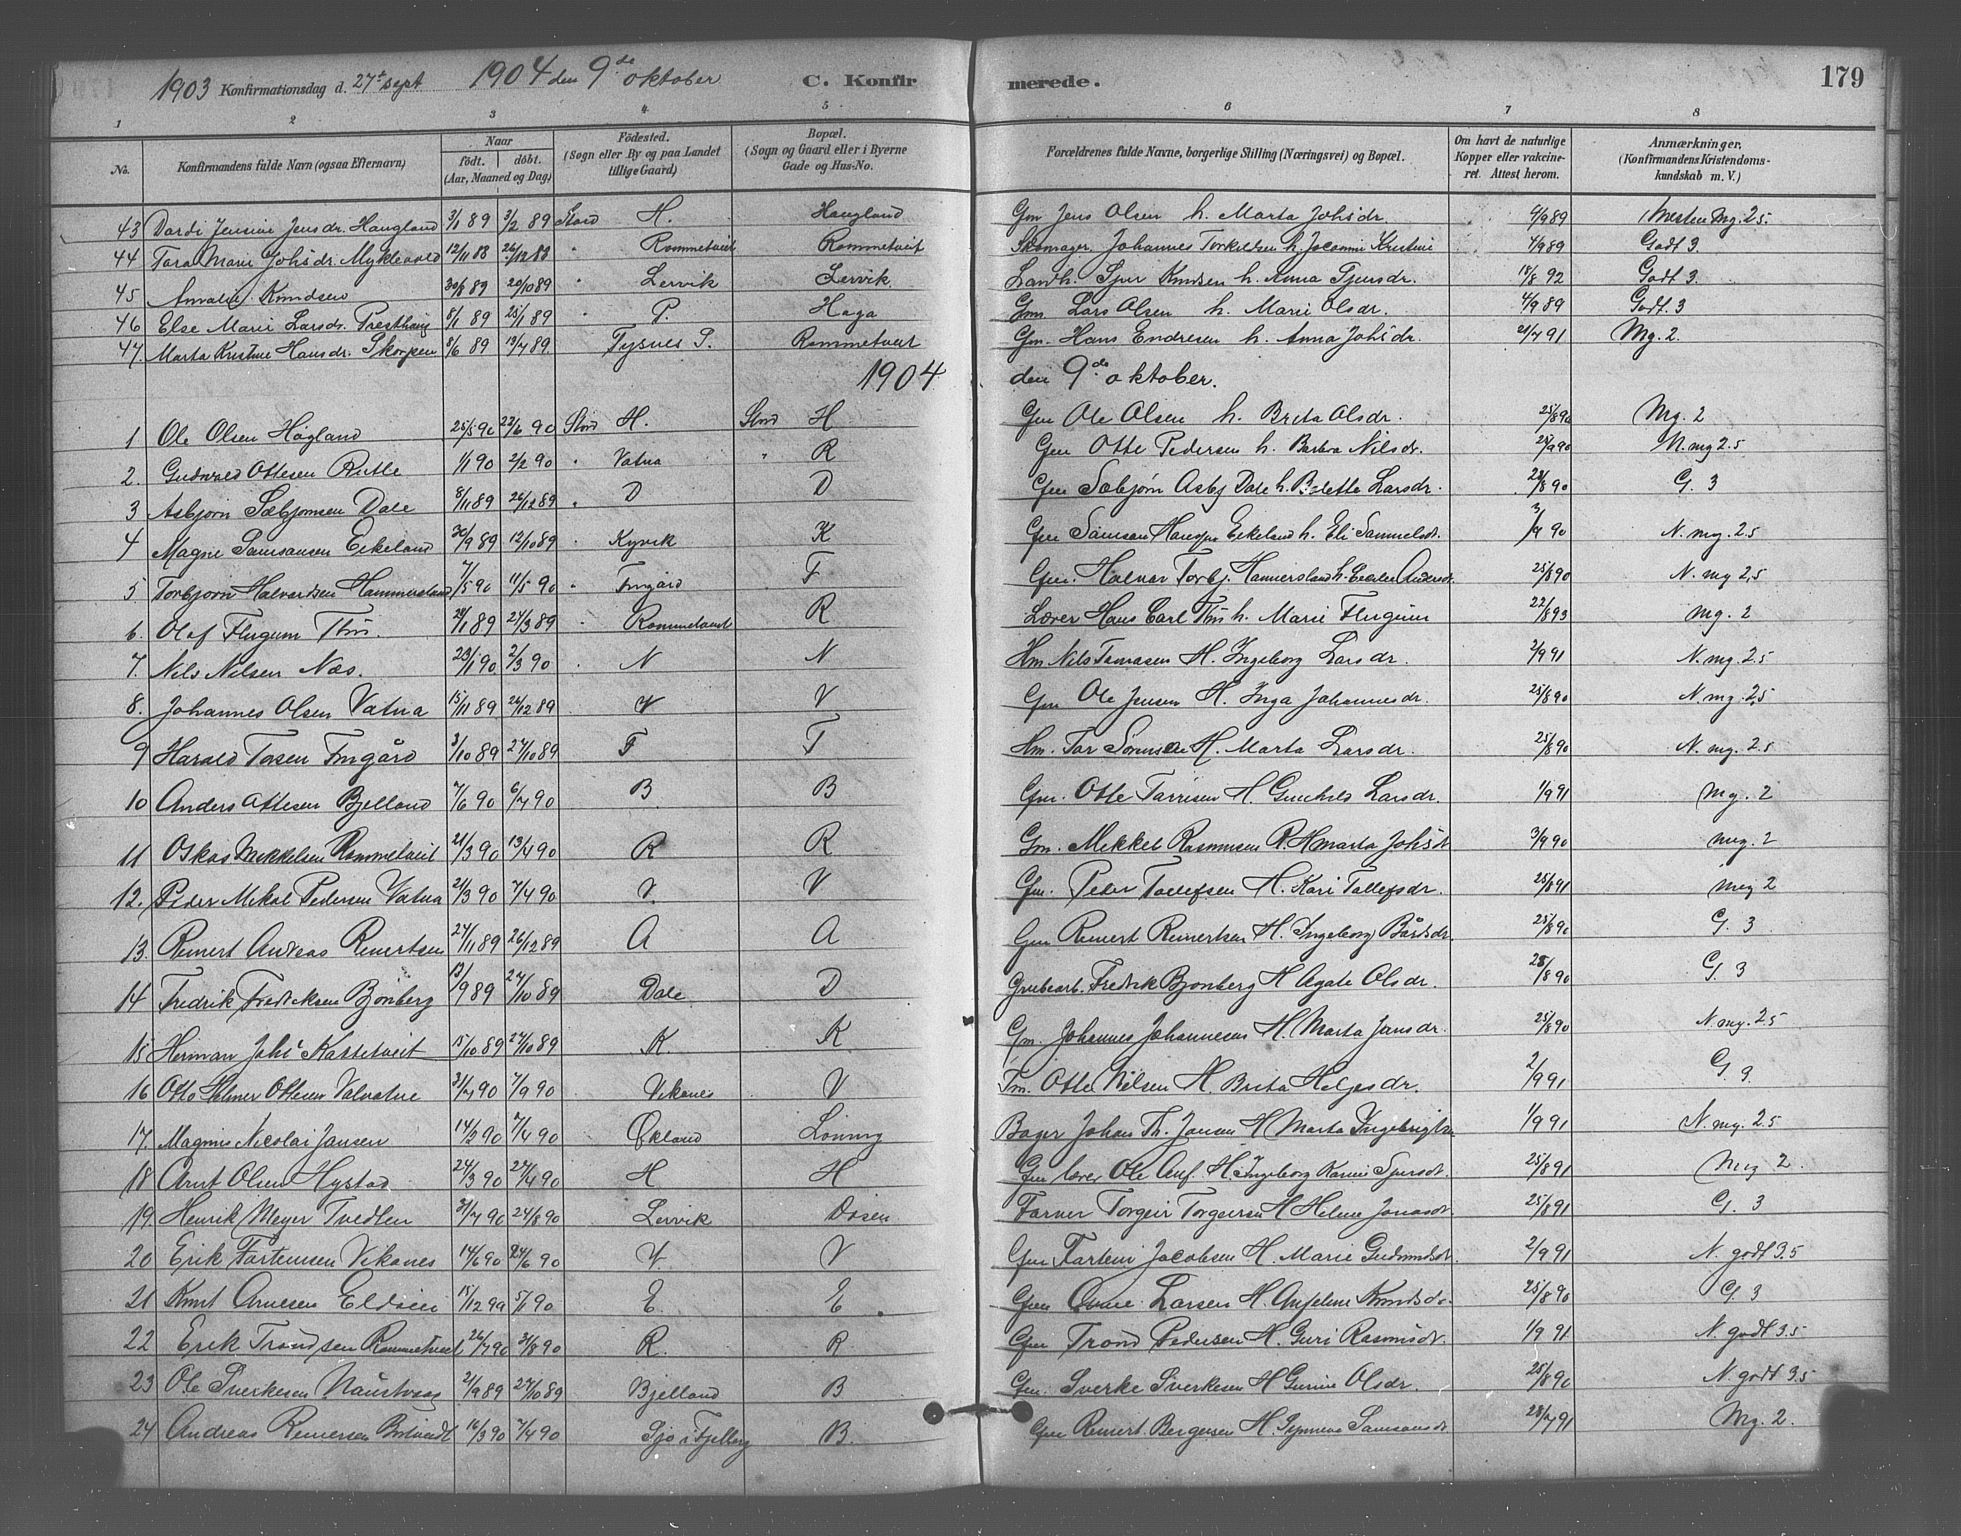 1903 Konfirmationsdag d. 27t sept. 1904 den 9de oktober C. Konfir merede. 179
1 2 3 4 5 6 7 8
No. Konfirmandens fulde Navn (ogsaa Efternavn) Naar født. døbt. (Aar, Maaned og Dag) Fødested. (Sogn eller By og paa Landet tillige Gaard) Bopæl. (Sogn og Gaard eller i Byerne Gade og Hus-No. Forældrenes fulde Navne, borgerlige Stilling (Næringsvei) og Bopæl. Om havt de naturlige Kopper eller vakcineret. Attest herom. Anmærkninger, (Konfirmandens Kristendomskundskab m. V.)
43 Dordi Jensine Jensdr. Haugland 3/1 89 3/2 89 Stord H. Haugland Gm Jens Olsen h. Marta Johsdr. 4/9 89 Næsten Mg. 2.5.
44 Tora Marie Johsdr. Myklevold 12/11 88 26/12 88 " Rommetveit Rommetveit Skomager Johannes Torkeldsen h. Jocomine Kristine 4/9 89 Godt 3.
45 Amalie Knudsen 20/10 89 " Lervik Lervik Landh. Sjur Knudsen h. Anna Sjursdr. 18/8 92 Godt 3.
46 Else Marie Larsdr. Presthaug 8/1 89 25/1 89 " P. Haga Gm. Lars Olsen h. Marie Olsdr. 4/9 89 Godt. 3
47. Marta Kristine Hansdr. Skorpen 8/6 89 13/7 89. Tysnes P. Rommetveit Gm. Hans Endresen h. Anna Johsdr. 21/7 91 Mg. 2.
1904 den 9de oktober.
1 Ole Olsen Høgland 25/5 90 22/6 90 Stord H. Stord H Gm Ole Olsen h. Brita Olsdr. 25/8 90 Mg. 2
2. Gudvald Ottesen Rutle 1/1 90 2/2 90 " Vatna " R Gm Otte Pedersen h. Barbra Nilsdr. 25/9 90 N. mg 2.5
3 Asbjørn Sæbjørnsen Dale 8/11 89 26/12 89 " D D Gm Sæbjørn Asbj Dale h. Boletta Larsdr. 28/8 90 G. 3
4 Magne Samsonsen Eikeland 30/9 89 12/10 89 " Kyvik K Gm Samson Eikeland h. Eli Samuelsdt. 3/9 90 N. mg. 2.5
5 Torbjørn Halvardsen Hammersland 7/5 90 11/5 90 " Tingård T. Gm. Halvar Torbj. Hammersland h. Cecilia Andersdr. 25/8 90 N. mg 2.5
6. Olaf Flugum Thu. 28/1 89 24/3 89 " Rommetveit R Lærer Hans Carl Thu h. Marie Flugum 22/8 93 mg. 2
7. Nils Nilsen Næs. 23/1 90 2/3 90 " N N Hm Nils Tomasen H. Ingeborg Larsdr. 2/9 91 N. mg. 2.5
8. Johannes Olsen Vatna 15/11 89 26/12 89 . V V Gm Ole Jensen H. Inga Johannesdr. 25/8 90 N. mg. 2,5
9 Harald Torsen Tingård 3/10 89 27/10 89 . T T Hm. Tor H. Marta Larsdr. 25/8 90 N. mg. 2.5
10 Anders Ottesen Bjelland 7/6 90 6/7 90 B B Gm. Otte Tarrisen H. Gunhild Larsdr. 1/9 91 Mg. 2
11 Oskar Mekkelsen Rommetveit 21/3 90 13/4 90 R R Gm. Mekkel Rasmusen R. H Marta Johsdt 3/9 90 mg. 2
12. Peder Mekal Pedersen Vatna 21/3 90 7/4 90 V. V Gm. Peder Tollefsen H. Kari Tollefsdr. 25/8 91 mg 2
13. Reinert Andreas Reinertsen 24/11 89 26/12 89 A A Gm Reinert Reinertsen H. Ingeborg Bårdsdr. 25/8 90 G. 3
14 Fredrik Fredriksen Bjønberg 13/9 89 27/10 89 Dale D Grubearb. Fredrik Bjonberg H Agate Olsdr. 28/8 90 G. 3
15 Herman Johs Kattetveit 15/10 89 27/10 89 K. K Gm. Johannes Johannesen H. Marta Jansdr. 25/8 90 N. mg. 2.5
16 Otto Helmer Ottesen Valvatne 31/7 90 7/9 90 Vikanes V Tm. Otte Nilsen H Brita Helgesdr. 2/9 91 G. 3.
17. Magnus Nicolai Jansen 14/2 90 7/4 90 Økland Løning Bager Johan Th. Jansen H Marta Ingebrigtsen 1/9 91 N. mg. 2.5
18 Arnt Olsen Hystad 24/3 90 27/4 90 H H Gm lærer Ole Arnf. H. Ingeborg Karine Sjursdt. 25/8 91 Mg 2.
19. Henrik Meyer Tvedten 31/7 90 24/8 90 Lervik Dåsen Farver Torgeir Torgeirsen H Helene Jonasdr 25/8 91 G. 3
20 Erik Farteinsen Vikanes 14/6 90 24/6 90 V. V Gm Fartein Jacobsen H. Marie Gudmundsdt. 2/9 91 N. godt 3.5
21 Knut Arnesen Eldøien 15/12 99 5/1 90 E. E. Gm Larsen H. Anjeline Knudsdr. 25/8 90 G. 3
22 Erik Trondsen Rommetveit 26/7 90 31/8 90 R. R Gm Trond Pedersen H. Guri Rasmusdt. 1/9 91. N. godt 3.5
23 Ole Sverkesen Naustvaag 21/9 89 27/10 89 Bjelland B Gm. Sverke Sverkesen H Gurine Olsdr. 25/8 90 N. godt 3.5
24 Andreas Reinersen 16/3 90 7/4 90 Sjo i Fjelberg B. Gm Reinert Bergesen H. Synneva Samsonsdt 28/7 91 Mg. 2.